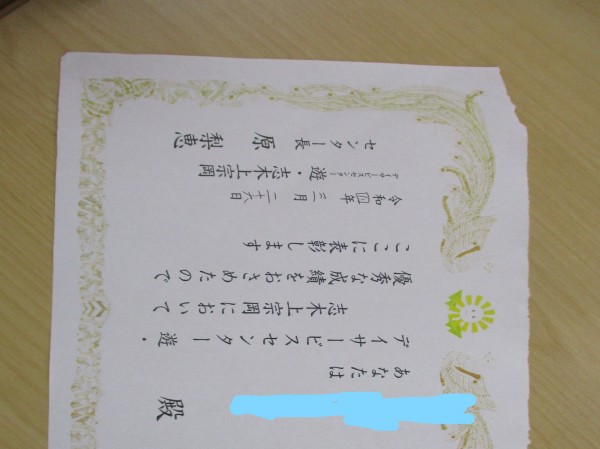 殿
あなたは
デイサービスセンター遊・
志木上宗岡において
優秀な成績をおさめたので
ここに表彰します
令和四年三月二十六日
デイサービスセンター遊・志木上宗岡
センター長 原 梨恵